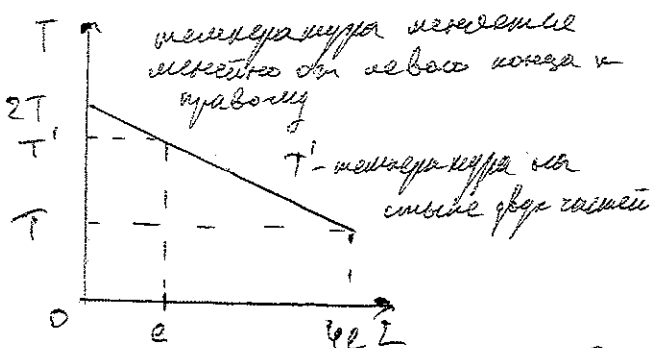 T
температура меняется
линейно от левого конца к
правому
2T
T'
T' - температура на
стыке двух частей
T
0
l
4l
L